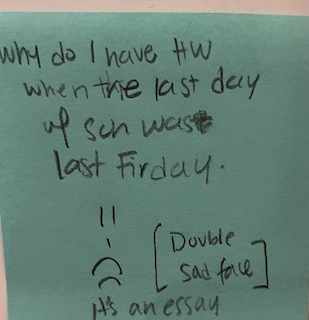 Why do I have HW
when the last day
of sch was
last Firday.
[Double
sad face]
It's an essay